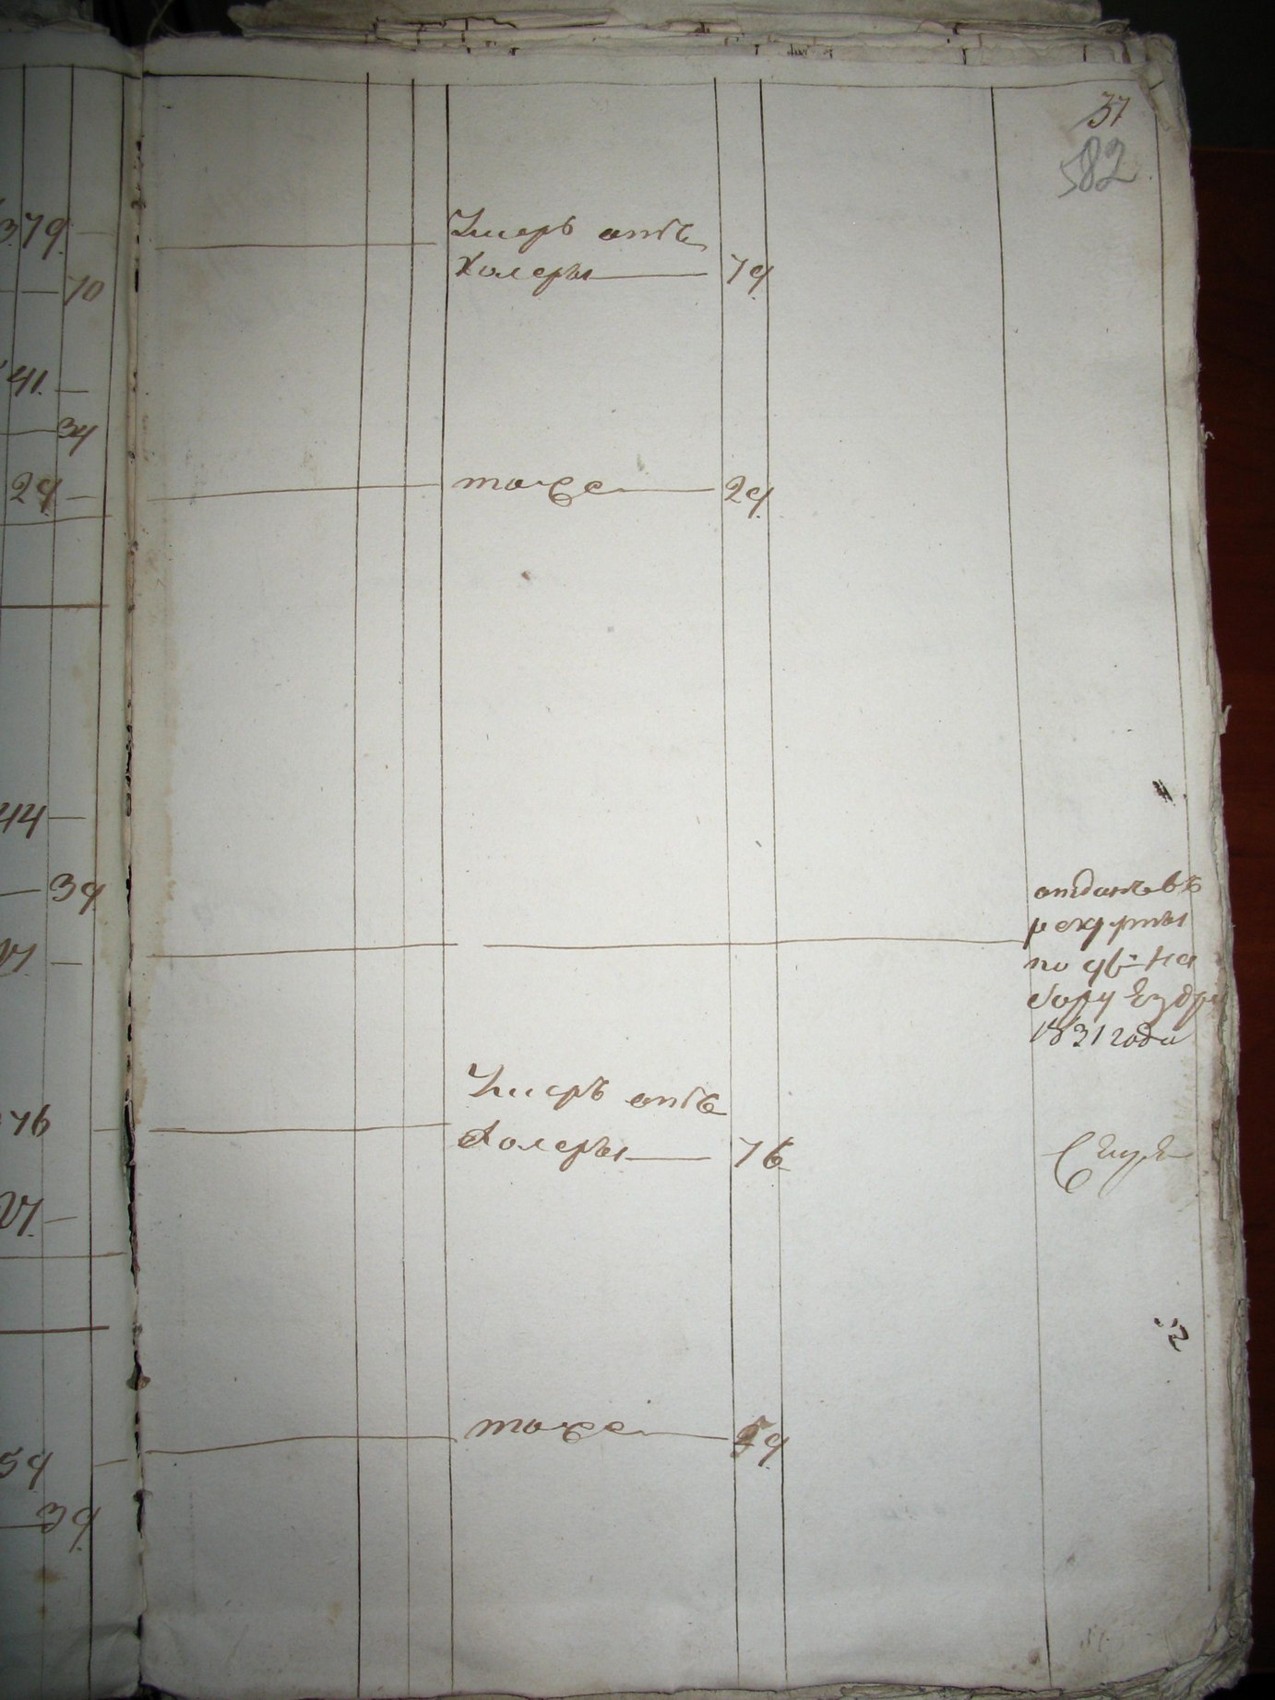 37
582
379
70
Умеръ отъ
холеры 79
41
34
29
тоже 29
44
39
отданъ въ
рекруты
по
1831 года
Умеръ отъ
холеры 76
76
тоже 59
59
39